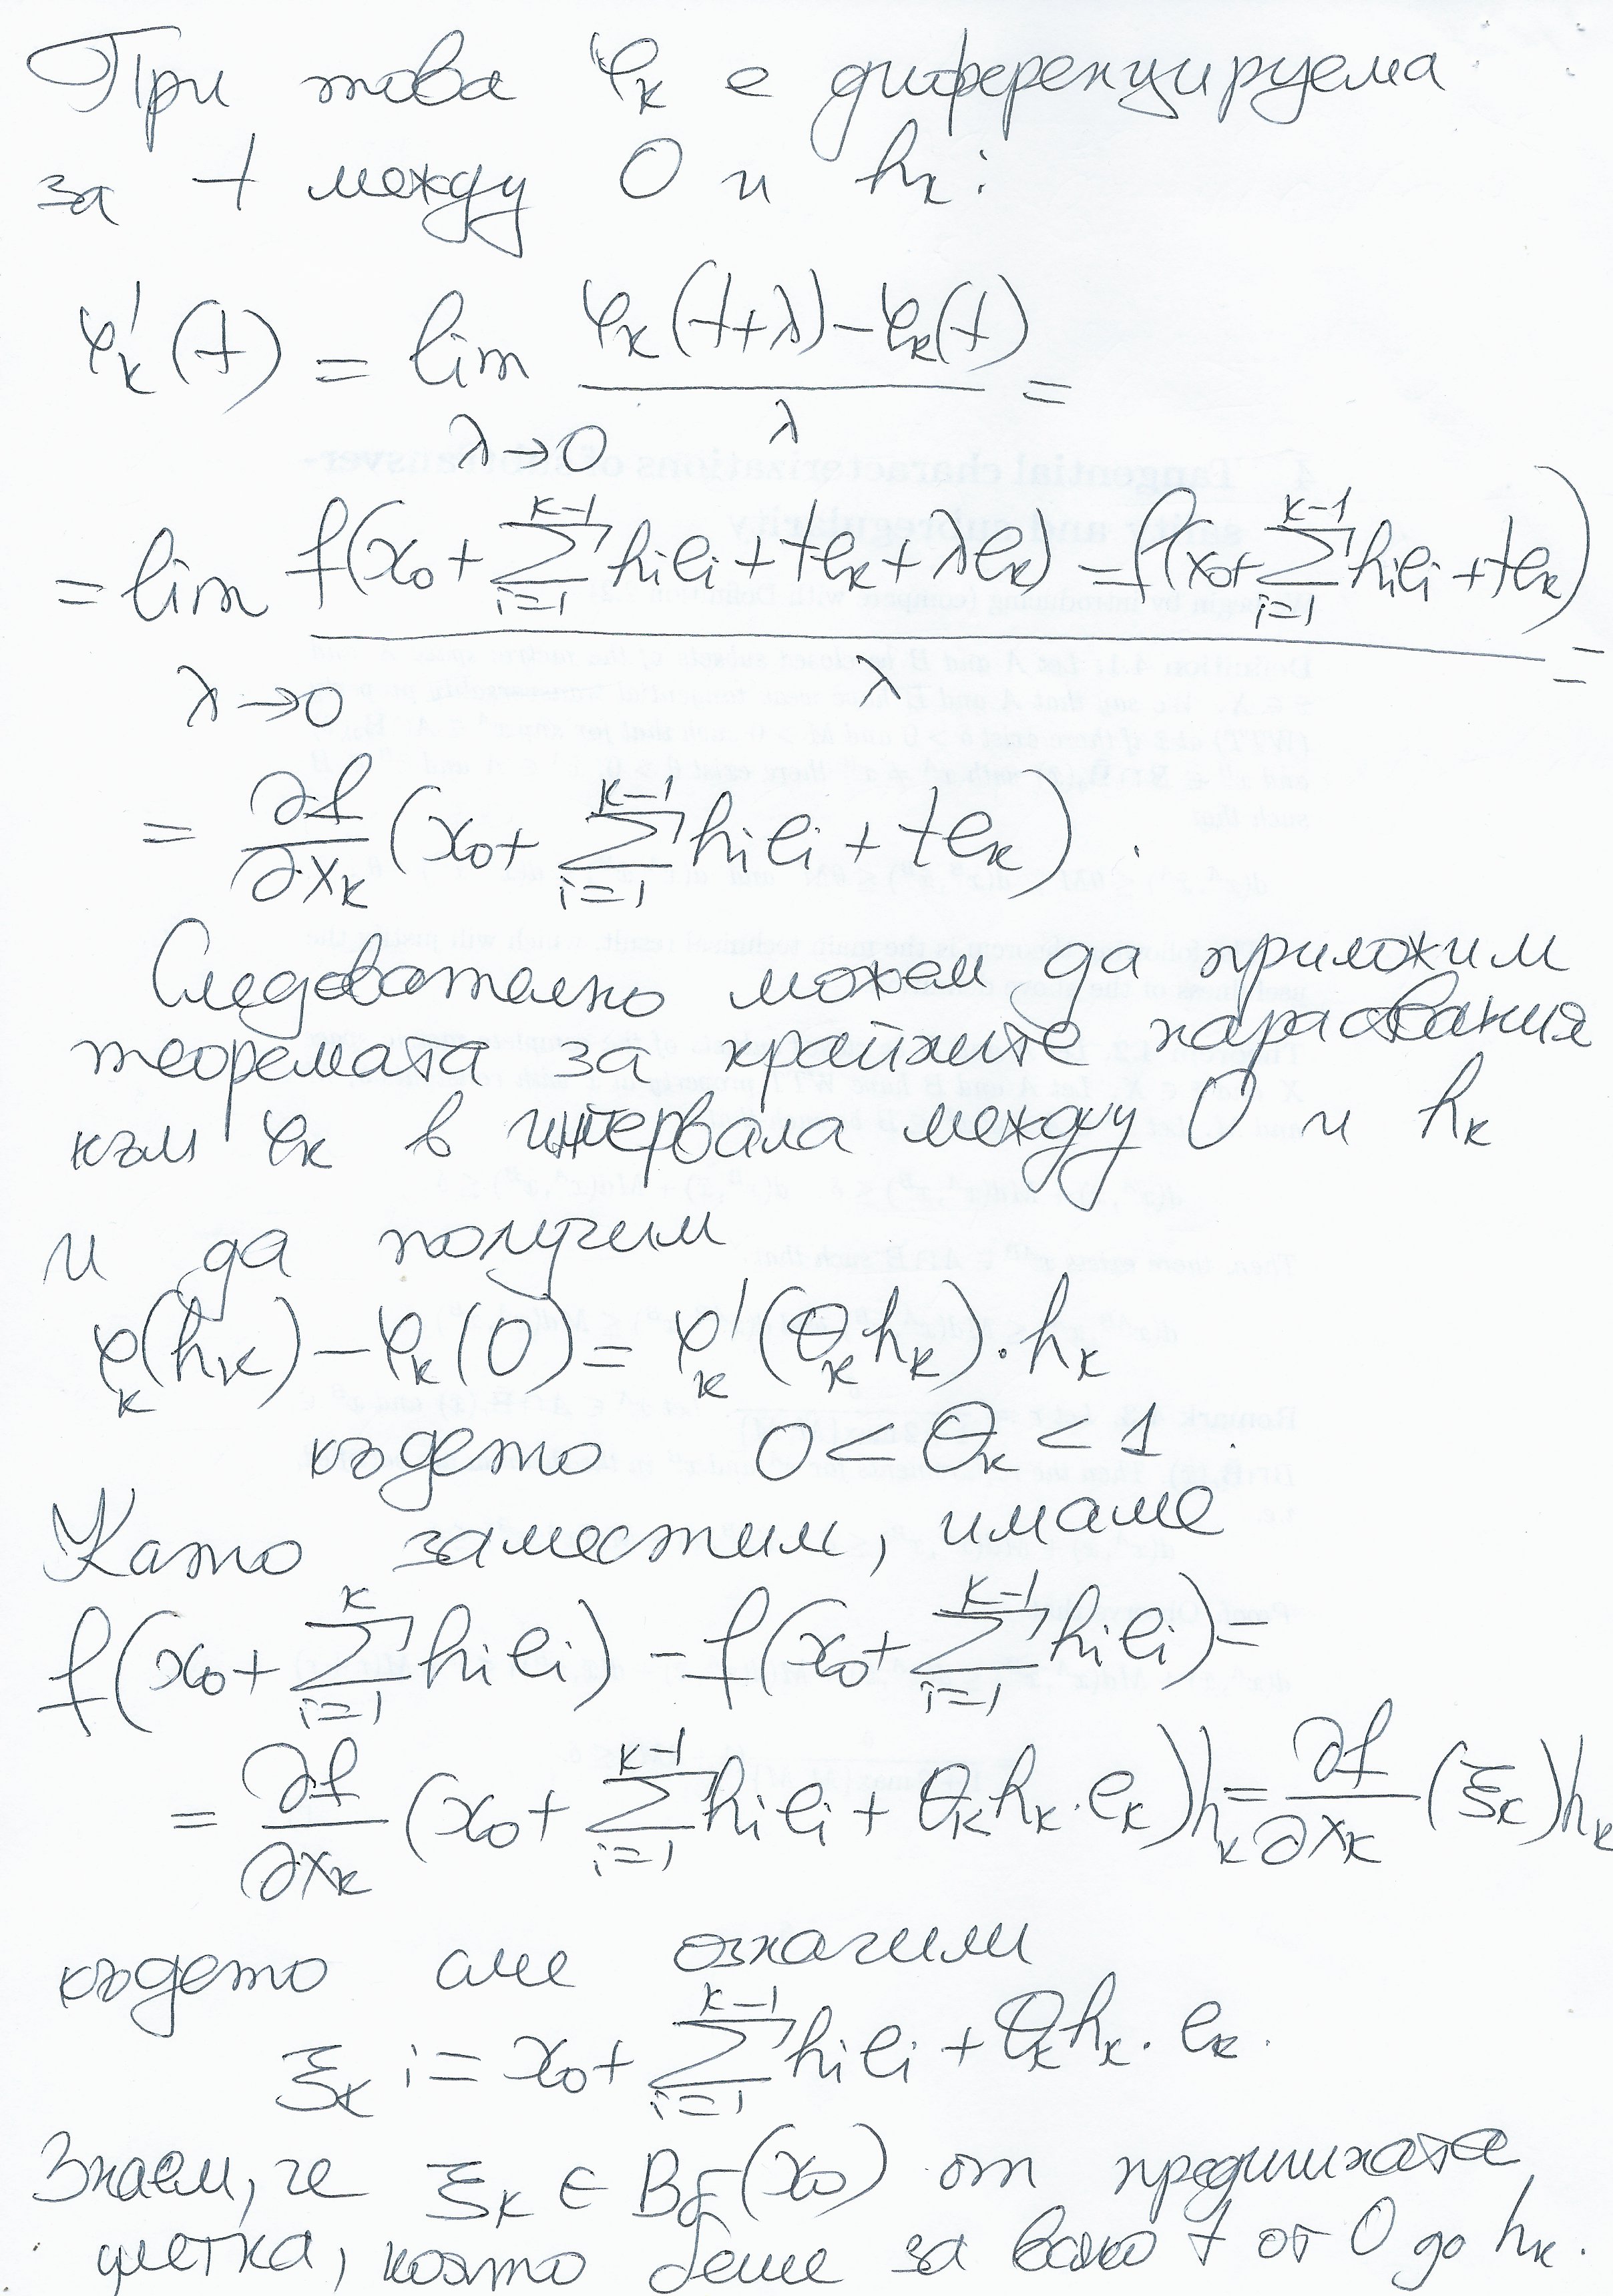 При това φₖ е диференцируема
за t между 0 и hₖ:
φₖ'(t) = lim_{λ→0} (φₖ(t+λ) − φₖ(t))/λ =
= lim_{λ→0} (f(x₀ + ∑_{i=1}^{k-1} hᵢeᵢ + teₖ + λeₖ) − f(x₀ + ∑_{i=1}^{k-1} hᵢeᵢ + teₖ))/λ =
= ∂f/∂xₖ (x₀ + ∑_{i=1}^{k-1} hᵢeᵢ + teₖ).
Следователно можем да приложим
теоремата за крайните нараствания
към φₖ в интервала между 0 и hₖ
и да получим
φₖ(hₖ) − φₖ(0) = φₖ'(θₖhₖ).hₖ
където 0 < θₖ < 1.
Като заместим, имаме
f(x₀ + ∑_{i=1}^{k} hᵢeᵢ) − f(x₀ + ∑_{i=1}^{k-1} hᵢeᵢ) =
= ∂f/∂xₖ (x₀ + ∑_{i=1}^{k-1} hᵢeᵢ + θₖhₖ.eₖ)hₖ = ∂f/∂xₖ (ξₖ)hₖ
където сме означили
ξₖ := x₀ + ∑_{i=1}^{k-1} hᵢeᵢ + θₖhₖ.eₖ.
Знаем, че ξₖ ∈ B_δ(x₀) от предишната
сметка, която беше за всяко t от 0 до hₖ.